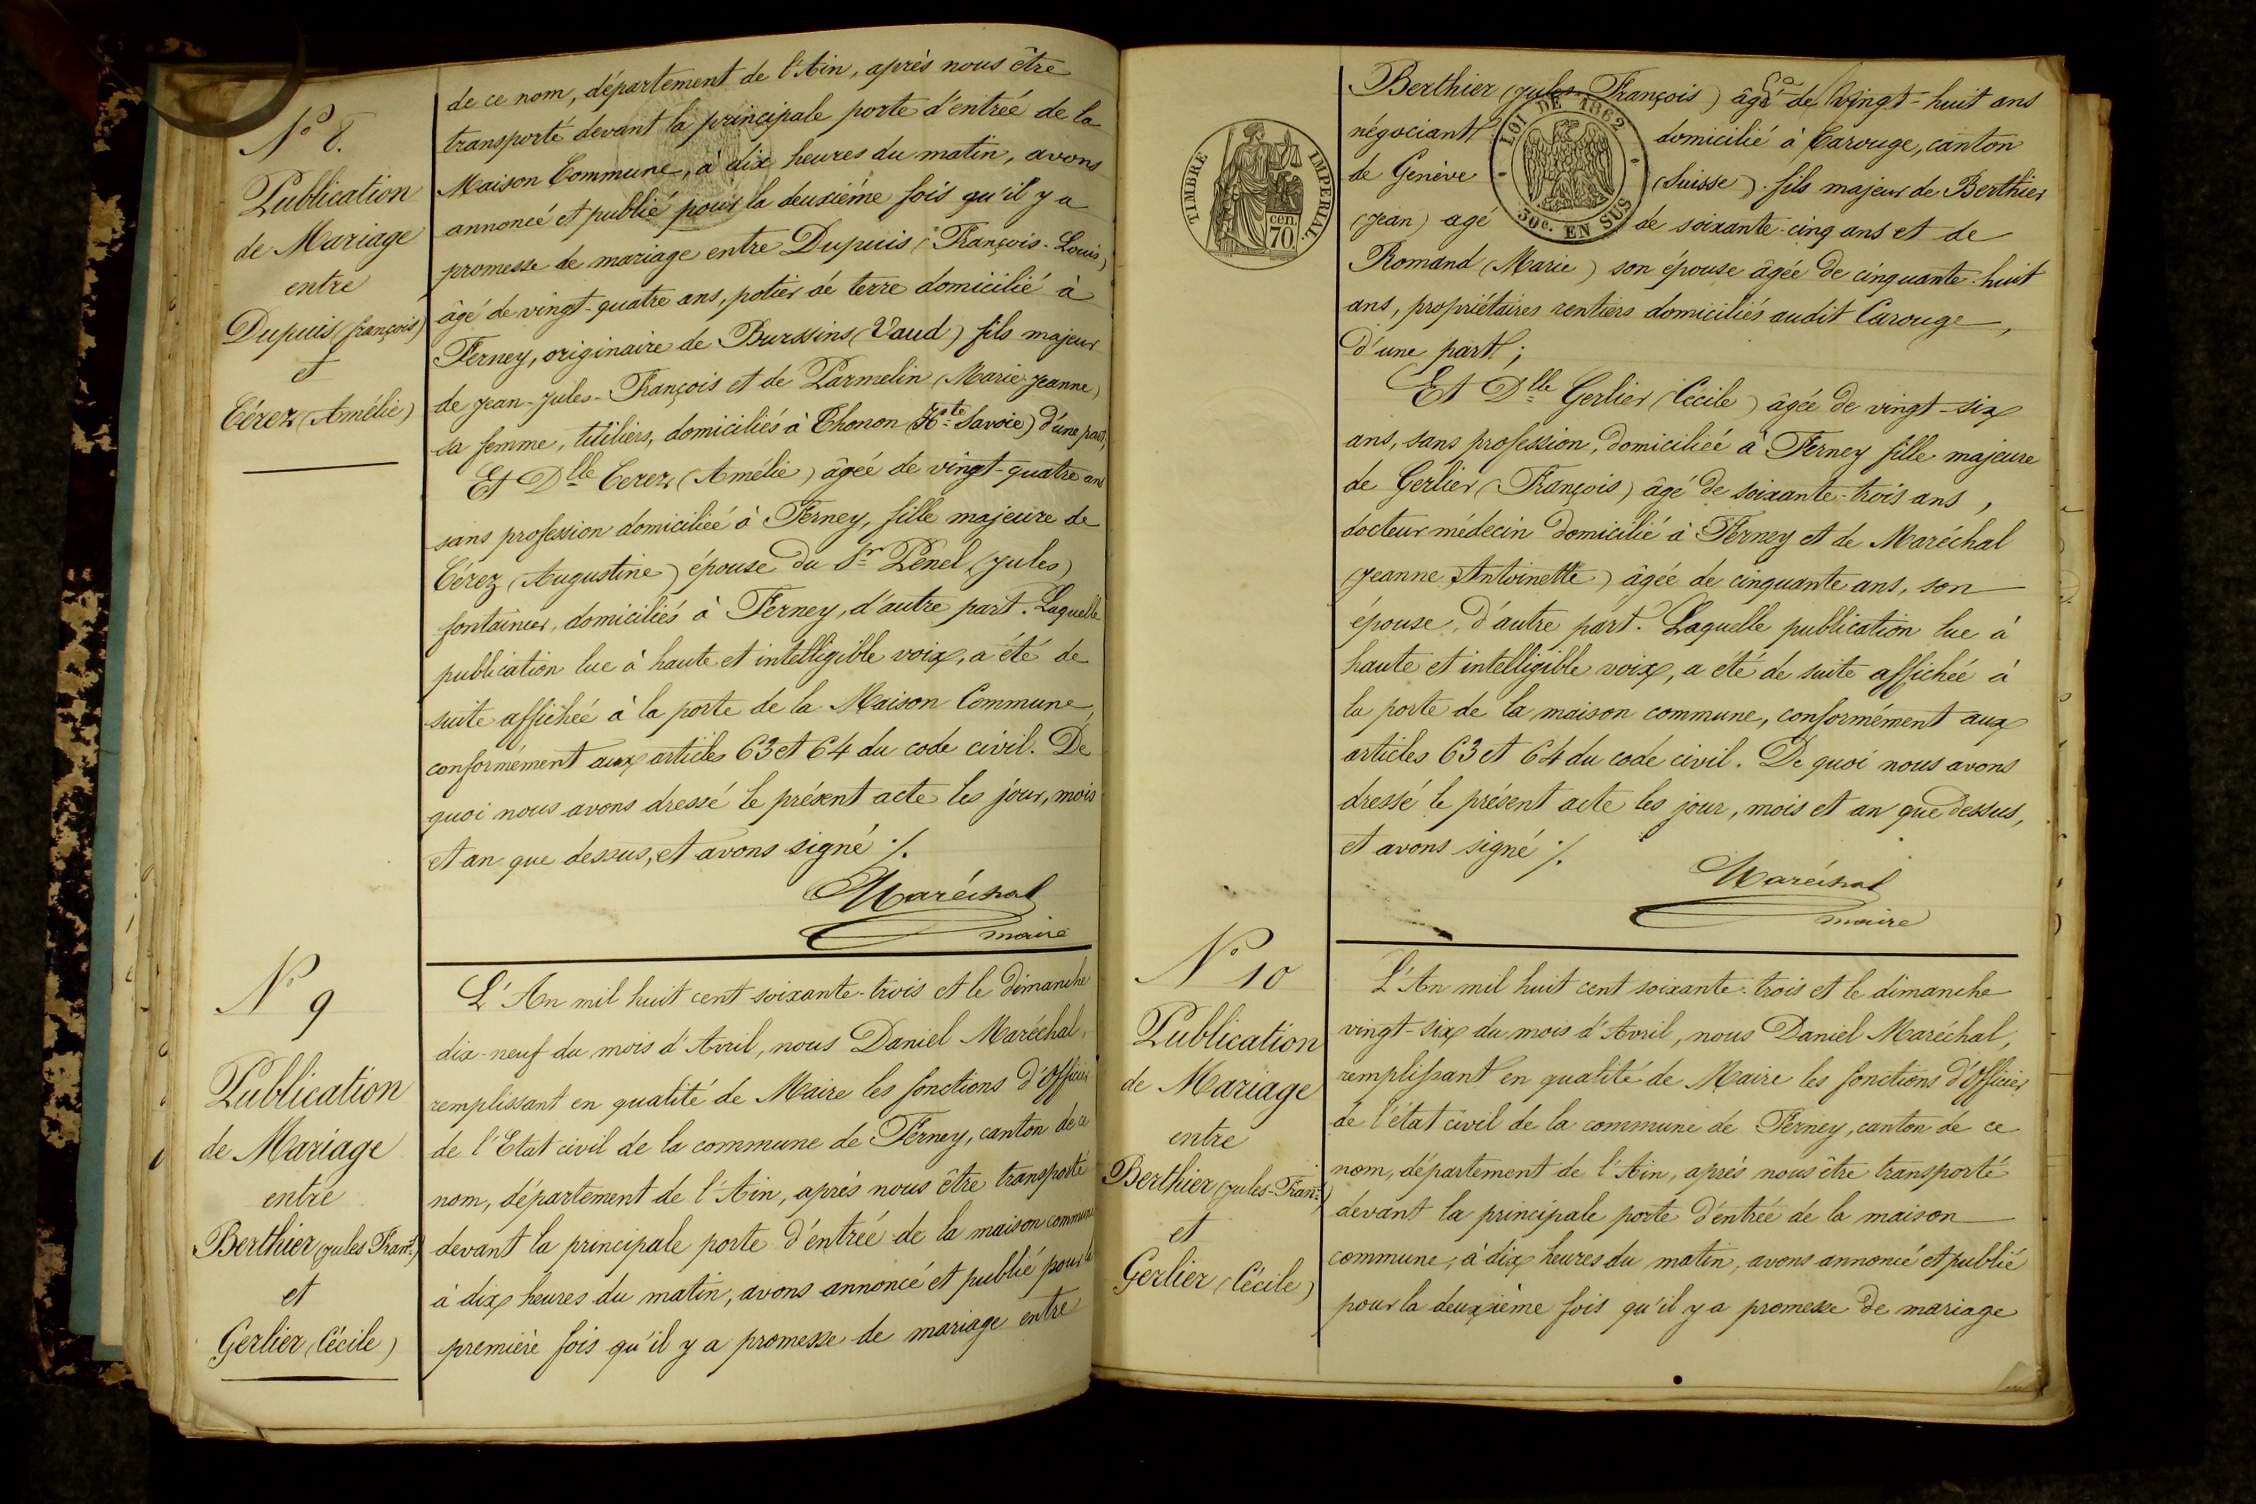 N° 8.
Publication
de Mariage
entre
Dupuis (françois)
et
Cérez (Amélie)
de ce nom, département de l'Ain, après nous être
transporté devant la principale porte d'entrée de la
Maison Commune, à dix heures du matin, avons
annoncé et publié pour la deuxième fois qu'il y a
promesse de mariage entre Dupuis (François-Louis)
âgé de vingt-quatre ans, potier de terre domicilié à
Ferney, originaire de Burssins (Vaud) fils majeur
de Jean-Jules-François et de Parmelin (Marie Jeanne)
sa femme, tuiliers, domiciliés à Thonon (Hte Savoie) d'une part,
Et Dlle Cerez (Amélie) âgée de vingt-quatre ans
sans profession domiciliée à Ferney, fille majeure de
Cérez (Augustine) épouse du Sr Penel (Jules)
fontainier, domiciliés à Ferney, d'autre part. Laquelle
publication lue à haute et intelligible voix, a été de
suite affichée à la porte de la Maison Commune,
conformément aux articles 63 et 64 du code civil. De
quoi nous avons dressé le présent acte les jour, mois
et an que dessus, et avons signé ./.
Maréchal
maire
N° 9
Publication
de Mariage
entre
Berthier (Jules Fran.s)
et
Gerlier (Cécile)
L'An mil huit cent soixante-trois et le dimanche
dix-neuf du mois d'Avril, nous Daniel Maréchal,
remplissant en qualité de Maire les fonctions d'Officier
de l'Etat civil de la commune de Ferney, canton de ce
nom, département de l'Ain, après nous être transporté
devant la principale porte d'entrée de la maison commune
à dix heures du matin, avons annoncé et publié pour la
première fois qu'il y a promesse de mariage entre
TIMBRE IMPERIAL.
cen.
70
LOI DE 1862
50c. EN SUS
Berthier (Jules François) âgé de vingt-huit ans
négociant domicilié à Carouge, canton
de Genève (Suisse). fils majeur de Berthier
(Jean) agé de soixante-cinq ans et de
Romand (Marie) son épouse âgée de cinquante-huit
ans, propriétaires rentiers domiciliés audit Carouge,
d'une part;
Et Dlle Gerlier (Cécile) âgée de vingt-six
ans, sans profession, domiciliée à Ferney fille majeure
de Gerlier (François) âgé de soixante-trois ans,
docteur médecin domicilié à Ferney et de Maréchal
(Jeanne Antoinette) âgée de cinquante ans, son
épouse, d'autre part. Laquelle publication lue à
haute et intelligible voix, a été de suite affichée à
la porte de la maison commune, conformément aux
articles 63 et 64 du code civil. De quoi nous avons
dressé le présent acte les jour, mois et an que dessus,
et avons signé ./.
Maréchal
maire
N° 10
Publication
de Mariage
entre
Berthier (Jules-Fran.s)
et
Gerlier (Cécile)
L'An mil huit cent soixante-trois et le dimanche
vingt-six du mois d'Avril, nous Daniel Maréchal,
remplissant en qualité de Maire les fonctions d'Officier
de l'état civil de la commune de Ferney, canton de ce
nom, département de l'Ain, après nous être transporté
devant la principale porte d'entrée de la maison
commune, à dix heures du matin, avons annoncé et publié
pour la deuxième fois qu'il y a promesse de mariage